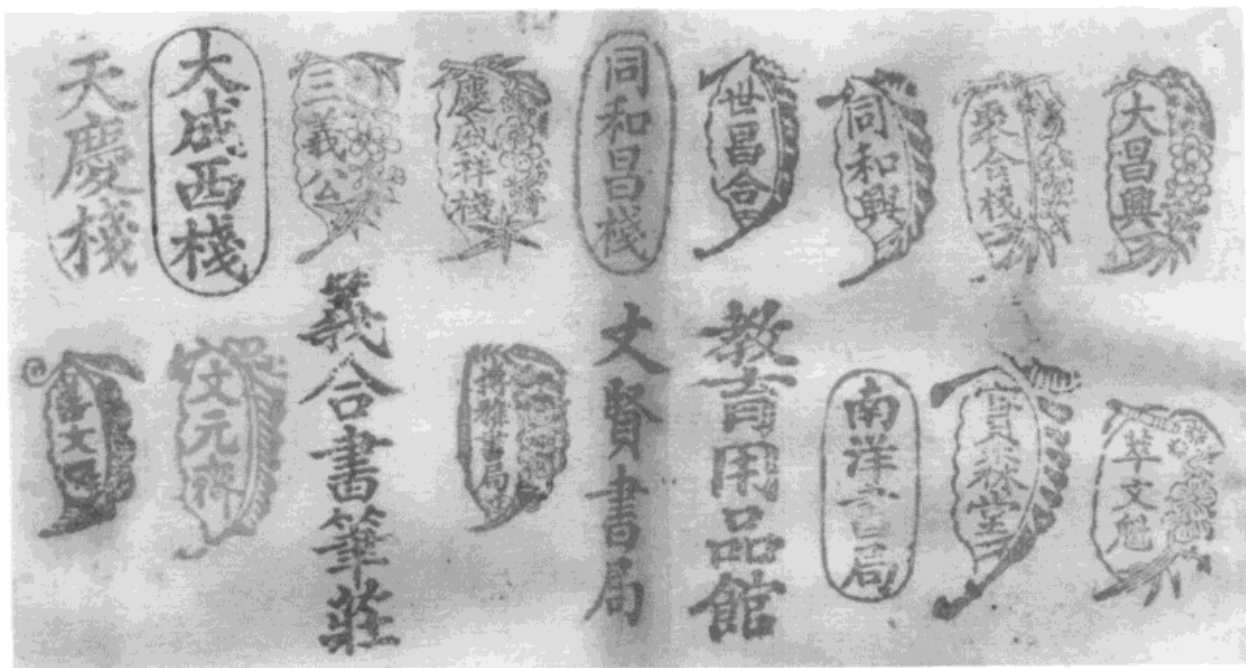 大昌興
聚合棧
同和興
世昌合
同和昌棧
慶祥棧
三義公
大成西棧
天慶棧
萃文魁
寶森堂
南洋書局
教育用品館
文賢書局
書局
義合書筆莊
文元齋
文